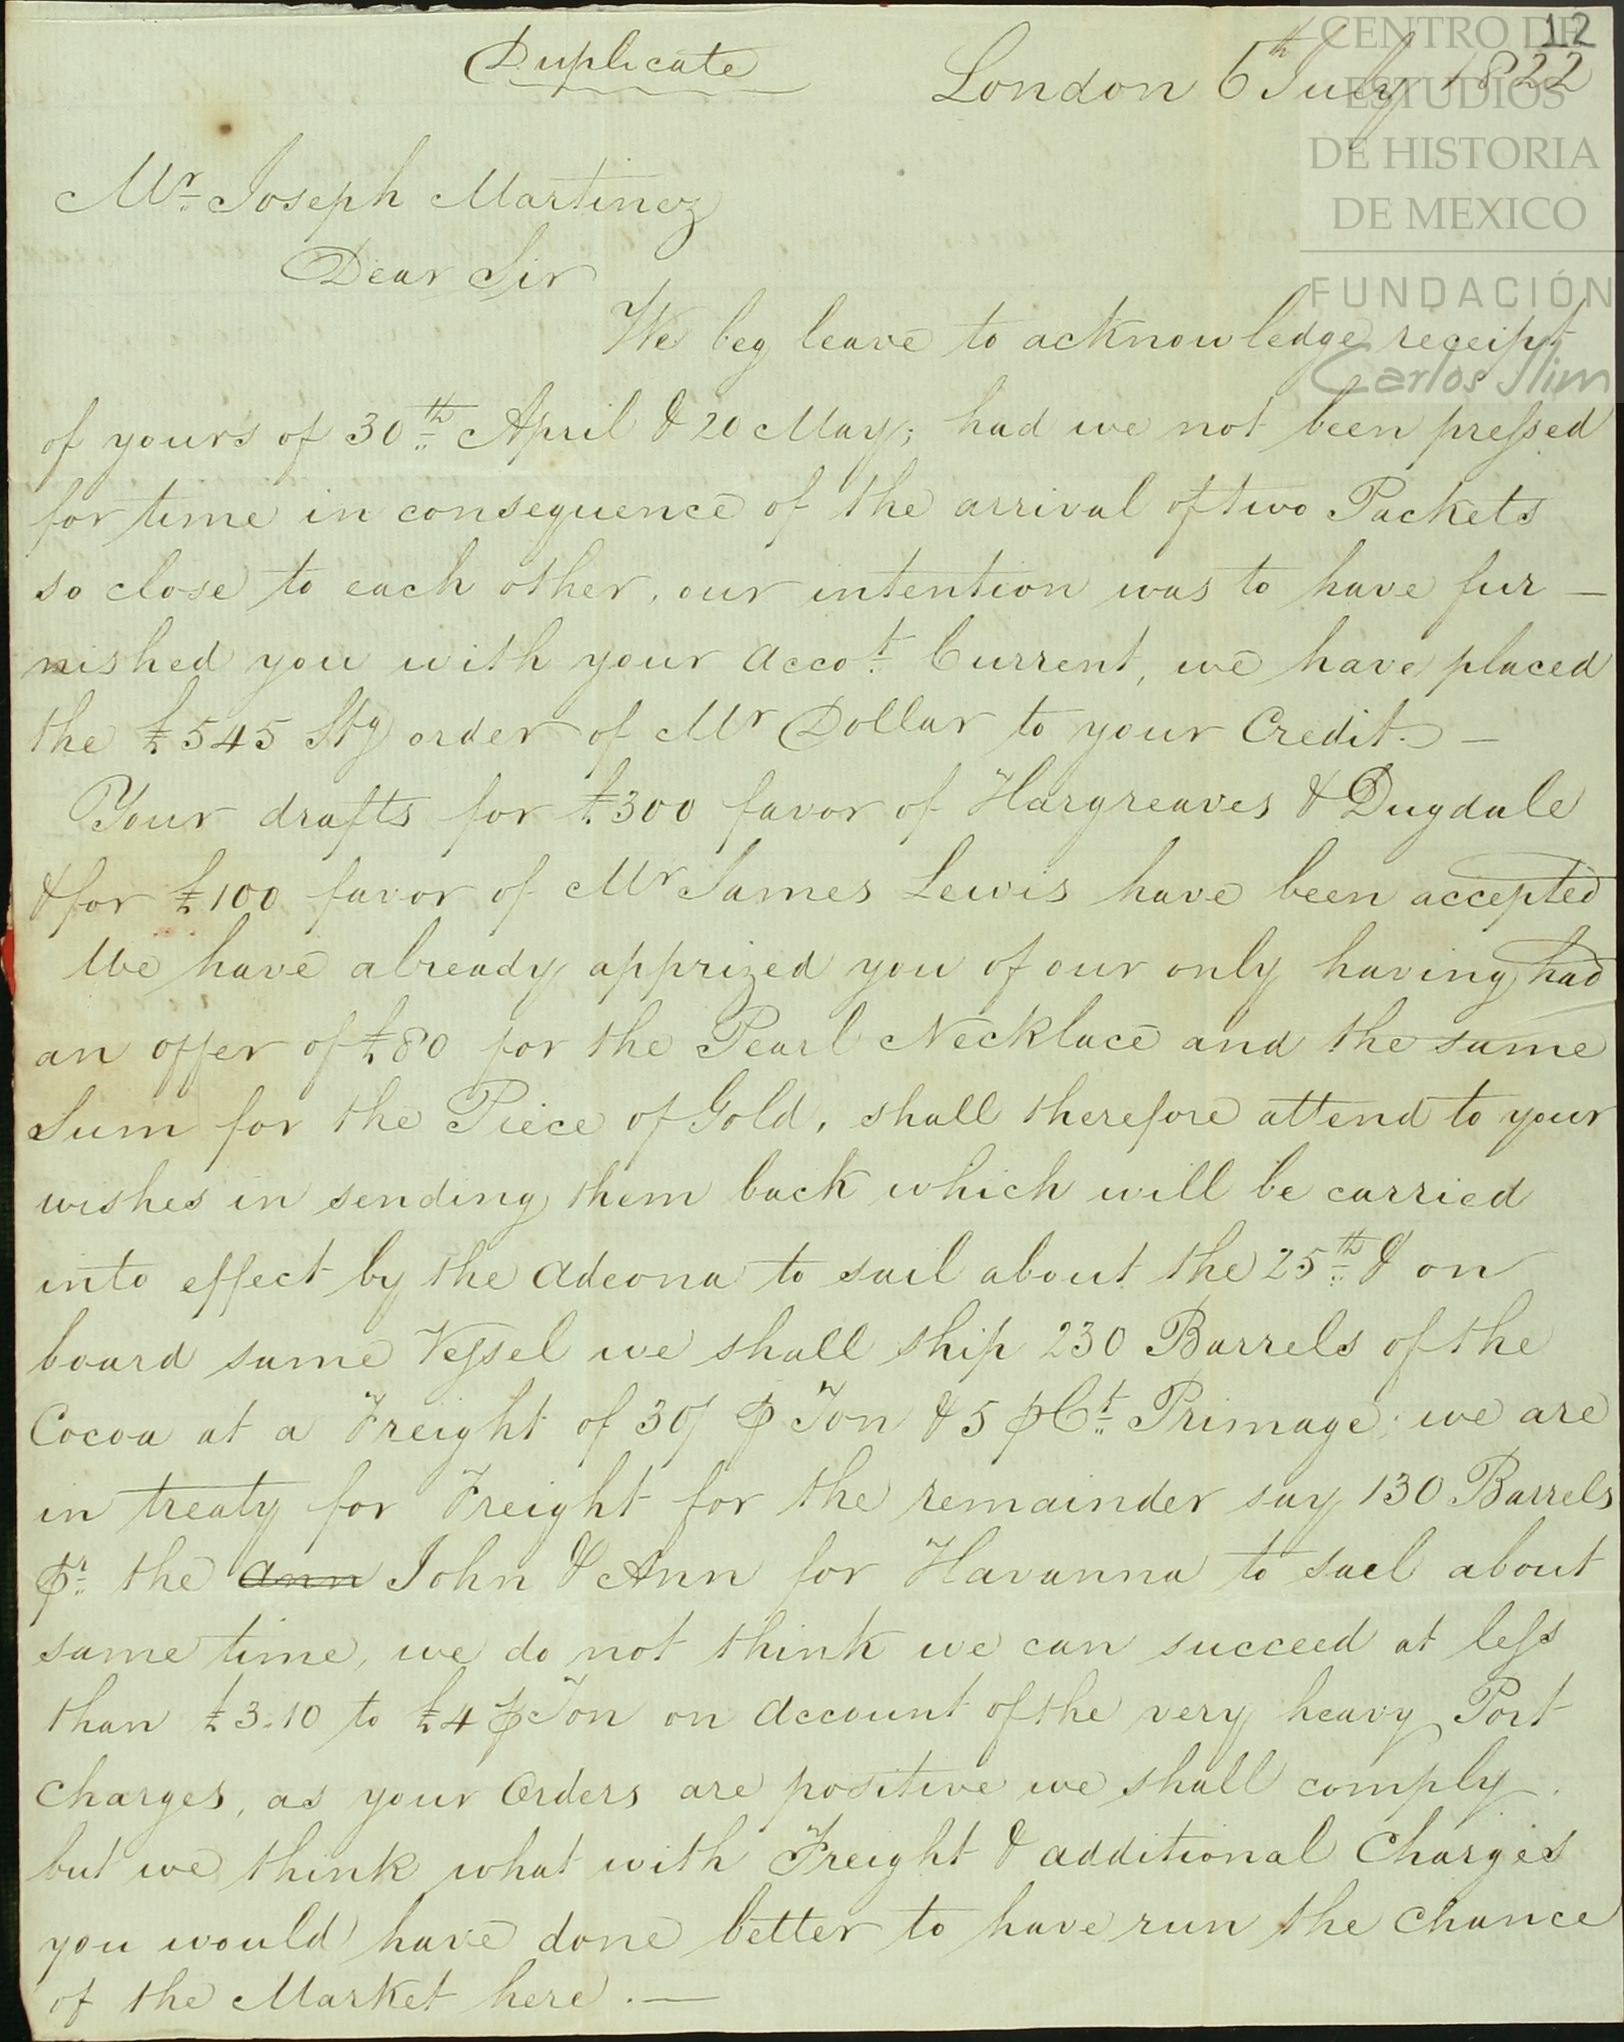 12
Duplicate
London 6th July 1822
CENTRO DE
ESTUDIOS
DE HISTORIA
DE MEXICO
FUNDACIÓN
Carlos Slim
Mr. Joseph Martinez
Dear Sir
We beg leave to acknowledge receipt
of yours of 30th April & 20 May; had we not been pressed
for time in consequence of the arrival of two Packets
so close to each other, our intention was to have fur-
nished you with your Accot. Current, we have placed
the £545 Stg order of Mr Dollar to your Credit. —
Your drafts for £300 favor of Hargreaves & Dugdale
& for £100 favor of Mr James Lewis have been accepted
We have already apprized you of our only having had
an offer of £80 for the Pearl Necklace and the same
Sum for the Piece of Gold, shall therefore attend to your
wishes in sending them back which will be carried
into effect by the Adeona to sail about the 25th & on
board same Vessel we shall ship 230 Barrels of the
Cocoa at a Freight of 30/ ⅌ Ton & 5 ⅌ Ct. Primage; we are
in treaty for Freight for the remainder say 130 Barrels
⅌r. the Ann John & Ann for Havanna to sael about
same time, we do not think we can succeed at less
than £3.10 to £4 ⅌ Ton on Account of the very heavy Port
Charges, as your Orders are positive we shall comply.
but we think what with Freight & additional Charges
you would have done better to have run the Chance
of the Market here. —